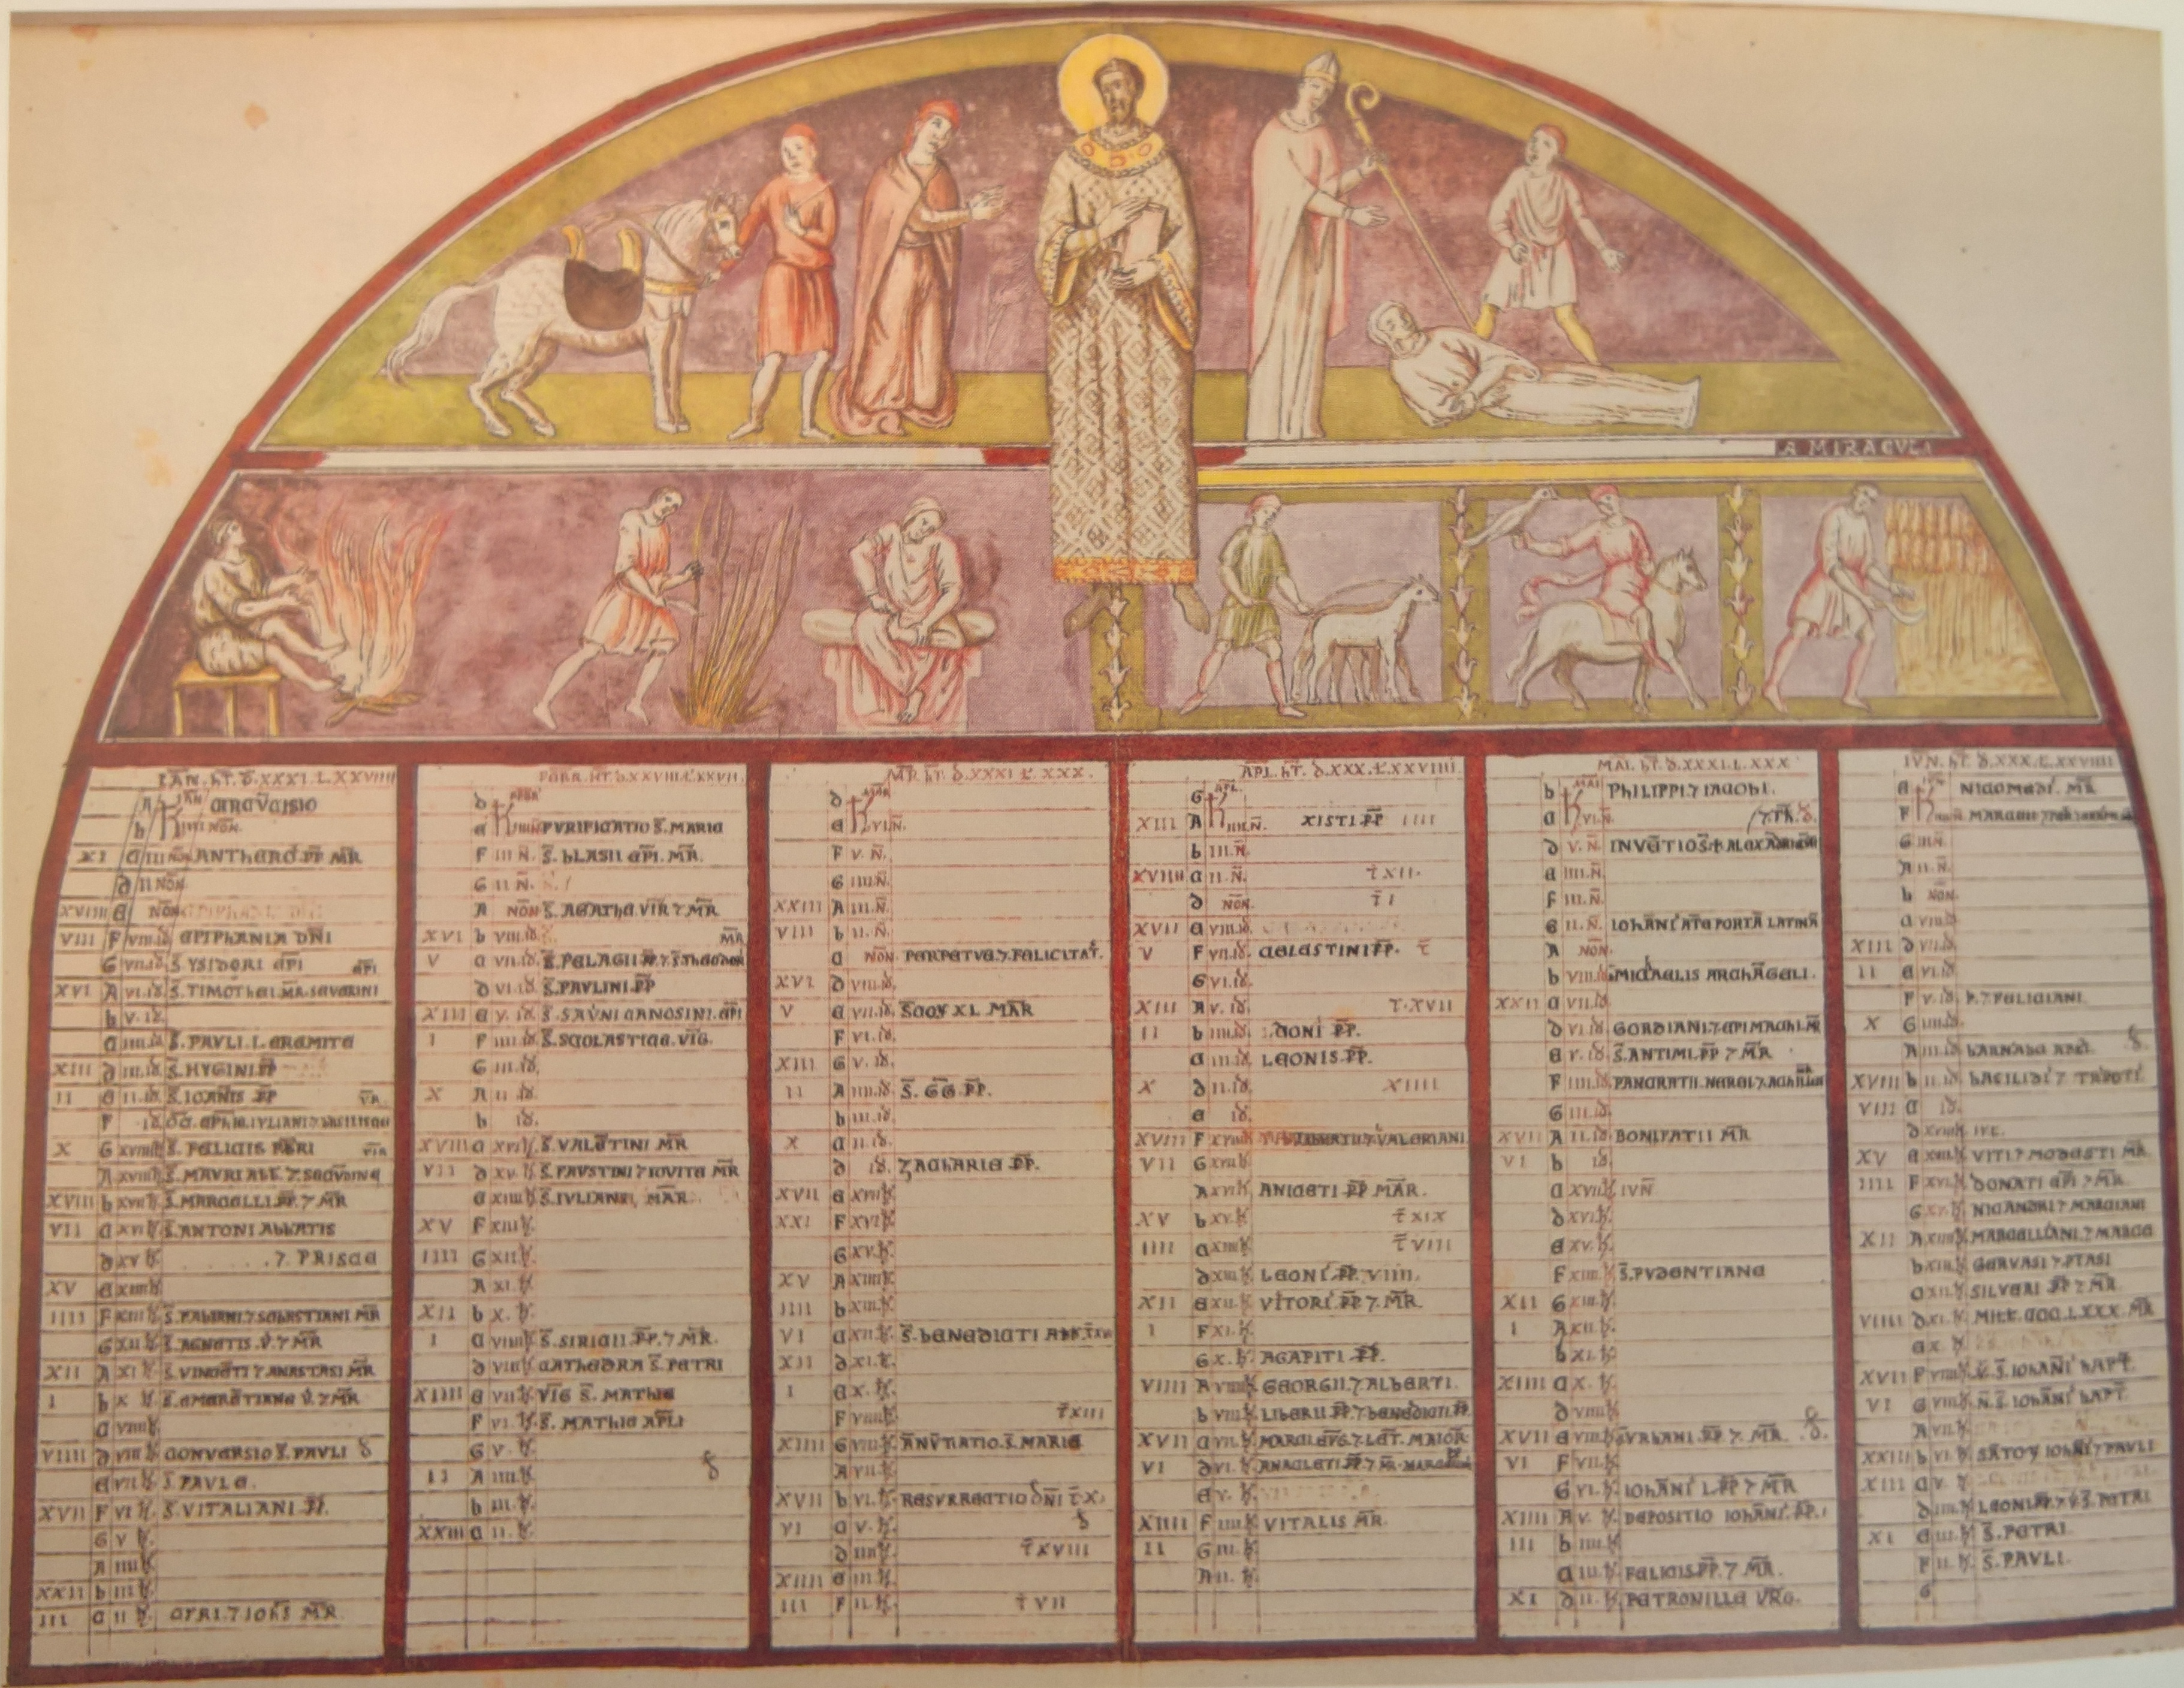 A MIRACVLA
IAN. hT. D. XXXI. L. XXVIIII
A K IAN
b IIII NON.
XI C III NON ANTHERO. PP MR
d II NON
XVIII E NON
VIII F VIII. ID EPIPHANIA DNI
G VII. ID S. YSIDORI EPI
XVI A VI. ID S. TIMOTHEI. MR. SEVERINI
b V. ID.
C IIII. ID S. PAVLI. I. EREMITE
XIII d III. ID S. HYGINI. PP
II E II. ID S. IOANIS PP
F ID
X G XVIIII K S. FELICIS PBRI
A XVIII K S. MAVRI ABB. 7 SECVDINE
XVIII b XVII K S. MARCELLI. PP. 7 MR
VII C XVI K S. ANTONI ABBATIS
d XV K 7 PRISCE
XV E XIIII K
IIII F XIII K S. FABIANI. 7 SEBASTIANI MR
G XII K S. AGNETIS. V. 7 MR
XII A XI K S. VINCETI 7 ANASTASI MR
I b X K S. EMERETIANE V. 7 MR
C VIIII K
VIIII d VIII K CONVERSIO S. PAVLI
E VII K S. PAVLE.
XVII F VI K S. VITALIANI PP.
G V K
A IIII K
XXII b III K
III C II K CYRI. 7 IOHIS MR
FEBR. HT. D. XXVIII. L. XXVII.
d K FEBR
E IIII N PVRIFICATIO S. MARIE
F III N. S. BLASII EPI. MR.
G II N.
A NON S. AGATHE VIR 7 MR
XVI b VIII. ID MR
V C VII. ID. S. PELAGII PP. 7 S. THEODOR
d VI. ID S. PAVLINI. PP
XIII E V. ID S. SAVNI CANOSINI. EPI
I F IIII. ID S. SCOLASTICE. VIG.
G III. ID.
X A II. ID.
b ID.
XVIII C XVI K S. VALETINI MR
VII d XV. K S. FAVSTINI 7 IOVITE MR
E XIIII K S. IVLIANE, MAR.
XV F XIII K
IIII G XII K.
A XI. K
XII b X. K.
I C VIIII K S. SIRICII. PP. 7 MR.
d VIII K CATHEDRA S. PETRI
XIIII E VII K VIG S. MATHIE
F VI. K S. MATHIE APLI
G V. K
II A IIII. K
b III. K
XXIII C II. K.
MR. HT. D XXXI L. XXX.
d K MAR
E VI. N.
F V. N.
G IIII N.
XXIII A III. N.
VIII b II. N.
C NON PERPETVE. 7 FELICITAT.
XVI d VIII. ID.
V E VII. ID. SCOY XL MAR
F VI. ID
XIII G V. ID.
II A IIII. ID. S. GG. PP.
b III. ID.
X C II. ID.
d ID. ZACHARIE PP.
XVII E XVII K
XXI F XVI K
G XV. K
XV A XIIII K
IIII b XIII. K
VI C XII. K S. BENEDICTI ABB
XII d XI. K
I E X. K.
F VIIII K T XIII
XIIII G VIII K ANVTIATIO. S. MARIE
A VII. K
XVII b VI. K. RESVRRECTIO DNI T X.
VI C V. K.
d IIII K T XVIII
XIIII E III. K.
III F II. K. T VII
APL. HT. D. XXX. L. XXVIIII.
G K APL.
XIII A IIII. N. XISTI PP IIII
b III. N.
XVIIII C II. N. T XII.
d NON. T I
XVII E VIII. ID
V F VII. ID. CELESTINI PP. T
G VI. ID.
XIII A V. ID T. XVII
II b IIII. ID PP.
C III. ID LEONIS. PP.
X d II. ID. XIIII
E ID.
XVIII F XVIII K 7 VALERIANI.
VII G XVII K.
A XVI K ANICETI PP MAR.
XV b XV. K T XIX
IIII C XIIII K T VIII
d XIII. K LEONI. PP. VIIII.
XII E XII. K VITORI. PP 7 MR.
I F XI. K
G X. K AGAPITI PP.
VIIII A VIIII K GEORGII. 7 ALBERTI.
b VIII K LIBERII PP. 7 BENEDICTI PP
XVII C VII. K MARCI EVG. 7 LET. MAIOR
VI d VI. K ANACLETI PP. 7 MR. MARCELLINI
E V. K
XIIII F IIII K VITALIS MR.
II G III. K
A II. K
MAI. HT. D. XXXI. L. XXX
b K MAI PHILIPPI 7 IACOBI.
C VI. N.
d V. N. INVETIO S. ALEXADRI
E IIII. N.
F III. N.
G II. N. IOHANI ATE PORTA LATINA
A NON.
b VIII. ID MICHAELIS ARCHAGELI.
XXII C VII. ID.
d VI. ID GORDIANI. 7 EPIMACHI. MR
E V. ID S. ANTIMI. PP 7 MR
F IIII. ID PANCRATII. NEREI 7 ACHILLEI
G III. ID.
XVII A II. ID BONIFATII MR
VI b ID.
C XVII. K IVN
d XVI. K
E XV. K
F XIIII. K S. PVDENTIANE
XII G XIII. K
I A XII K.
b XI. K
XIIII C X. K.
d VIIII K
XVII E VIII K S. VRBANI. PP. 7. MR.
VI F VII. K
G VI. K IOHANI I. PP 7 MR
XIIII A V. K DEPOSITIO IOHANI. PP.
III b IIII. K
C III. K FELICIS. PP. 7. MR.
XI d II. K. PETRONILLE VRG.
IVN. HT. D. XXX. L. XXVIIII
E K IVN NICOMEDI. MR
F IIII. N.
G III N.
A II. N.
b NON.
C VIII. ID
XIII d VII. ID.
II E VI. ID.
F V. ID P. 7 FELICIANI
X G IIII. ID.
A III. ID BARNABE APLI.
XVIII b II. ID BASILIDI 7
VIII C ID.
d XVIII K
XV E XVII. K VITI. 7 MODESTI MR
IIII F XVI. K DONATI EPI 7 MR.
G XV. K NICANDRI 7 MARCIANI
XII A XIIII K MARCELLIANI. 7 MARCE
b XIII. K GERVASI 7 PTASI
C XII. K SILVERI PP 7 MR.
VIIII d XI. K MILL. CCC. LXXX. MR
E X. K
XVII F VIIII K V. S. IOHANI BAPT.
VI G VIII K N. S. IOHANI BAPT.
A VII. K
XXIII b VI. K SATOY IOHANI 7 PAVLI
XIII C V. K
d IIII. K LEONI PP. 7 V. S. PETRI
XI E III. K S. PETRI.
F II. K S. PAVLI.
G